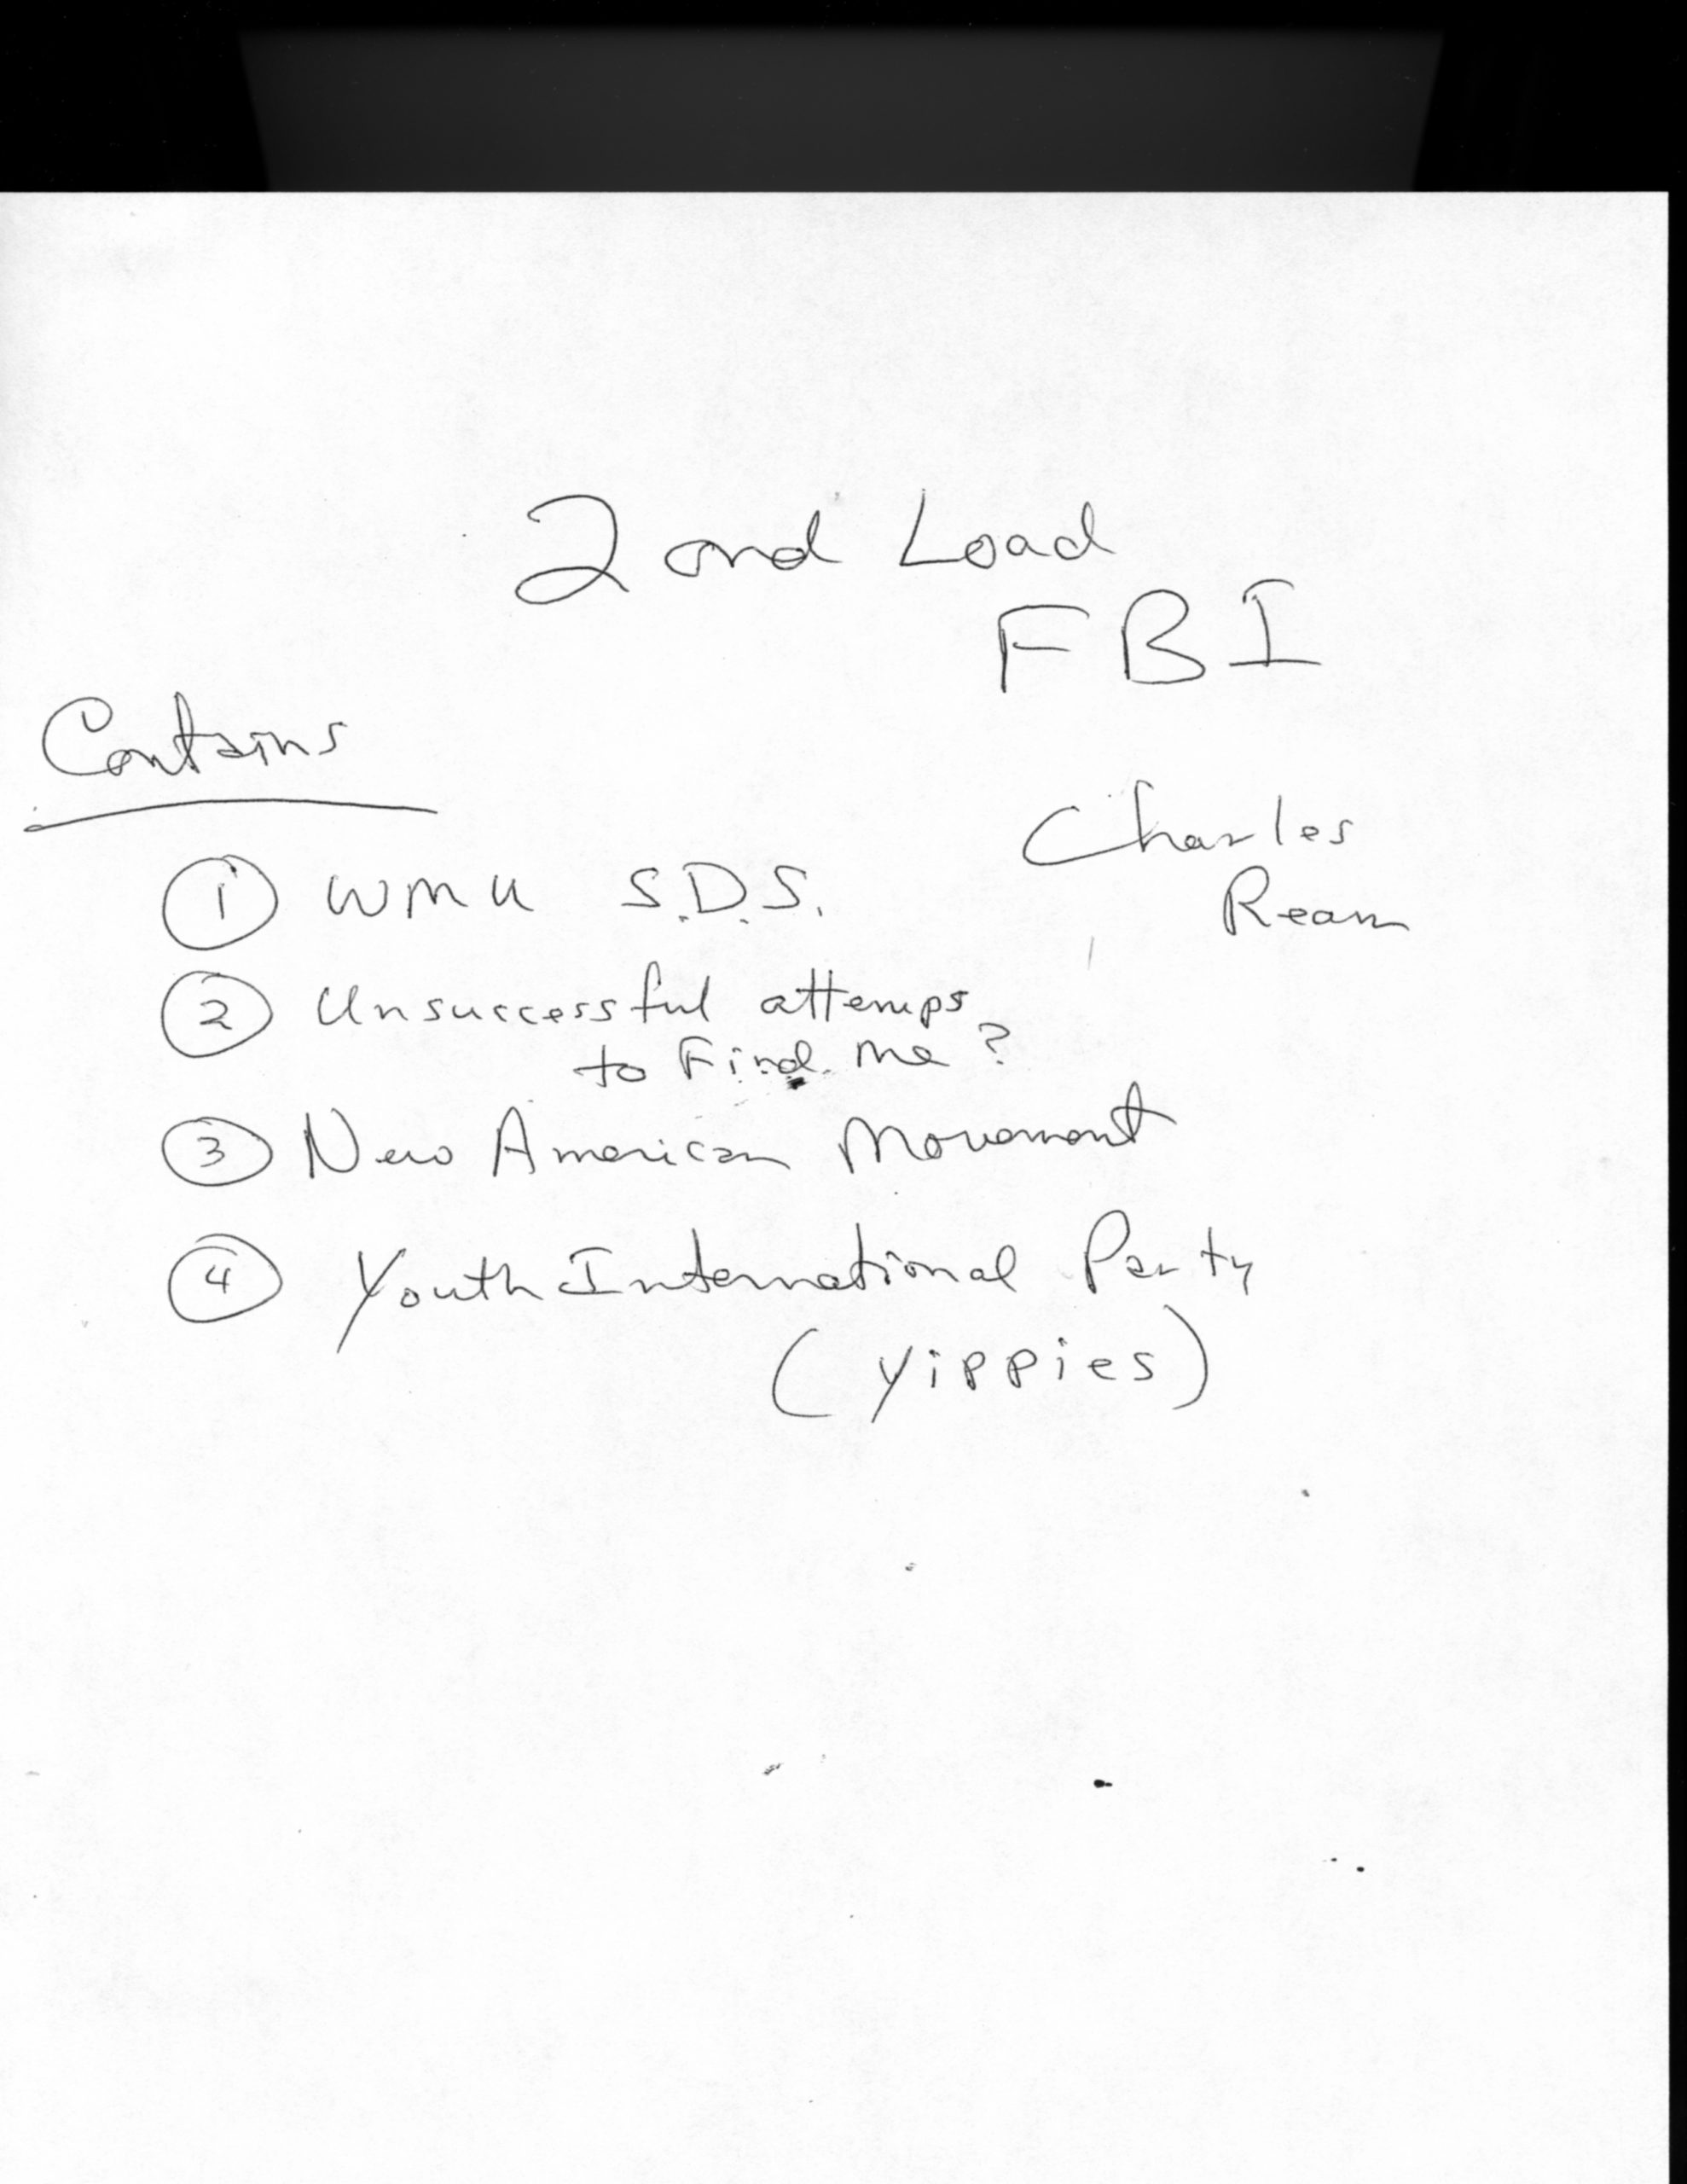 2ond Load
FBI
Contains
Charles
Ream
① WMU S.D.S.
② Unsuccessful attemps
to Find me?
③ New American Movement
④ Youth International Party
(Yippies)